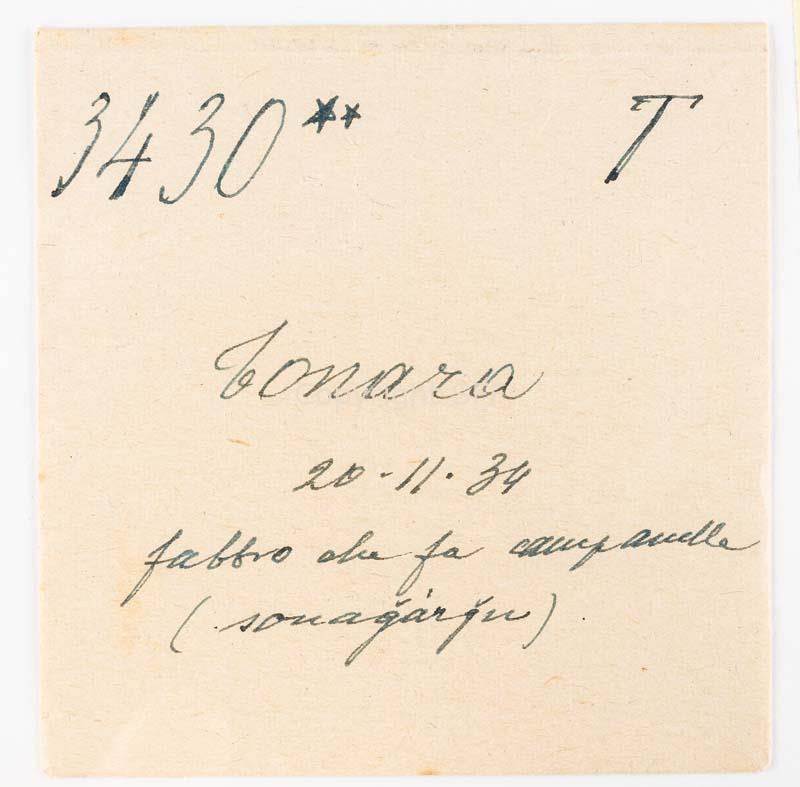 3430** T
Tonara
20-11.34
fabbro che fa campanelle
(sonaǧárǧu).